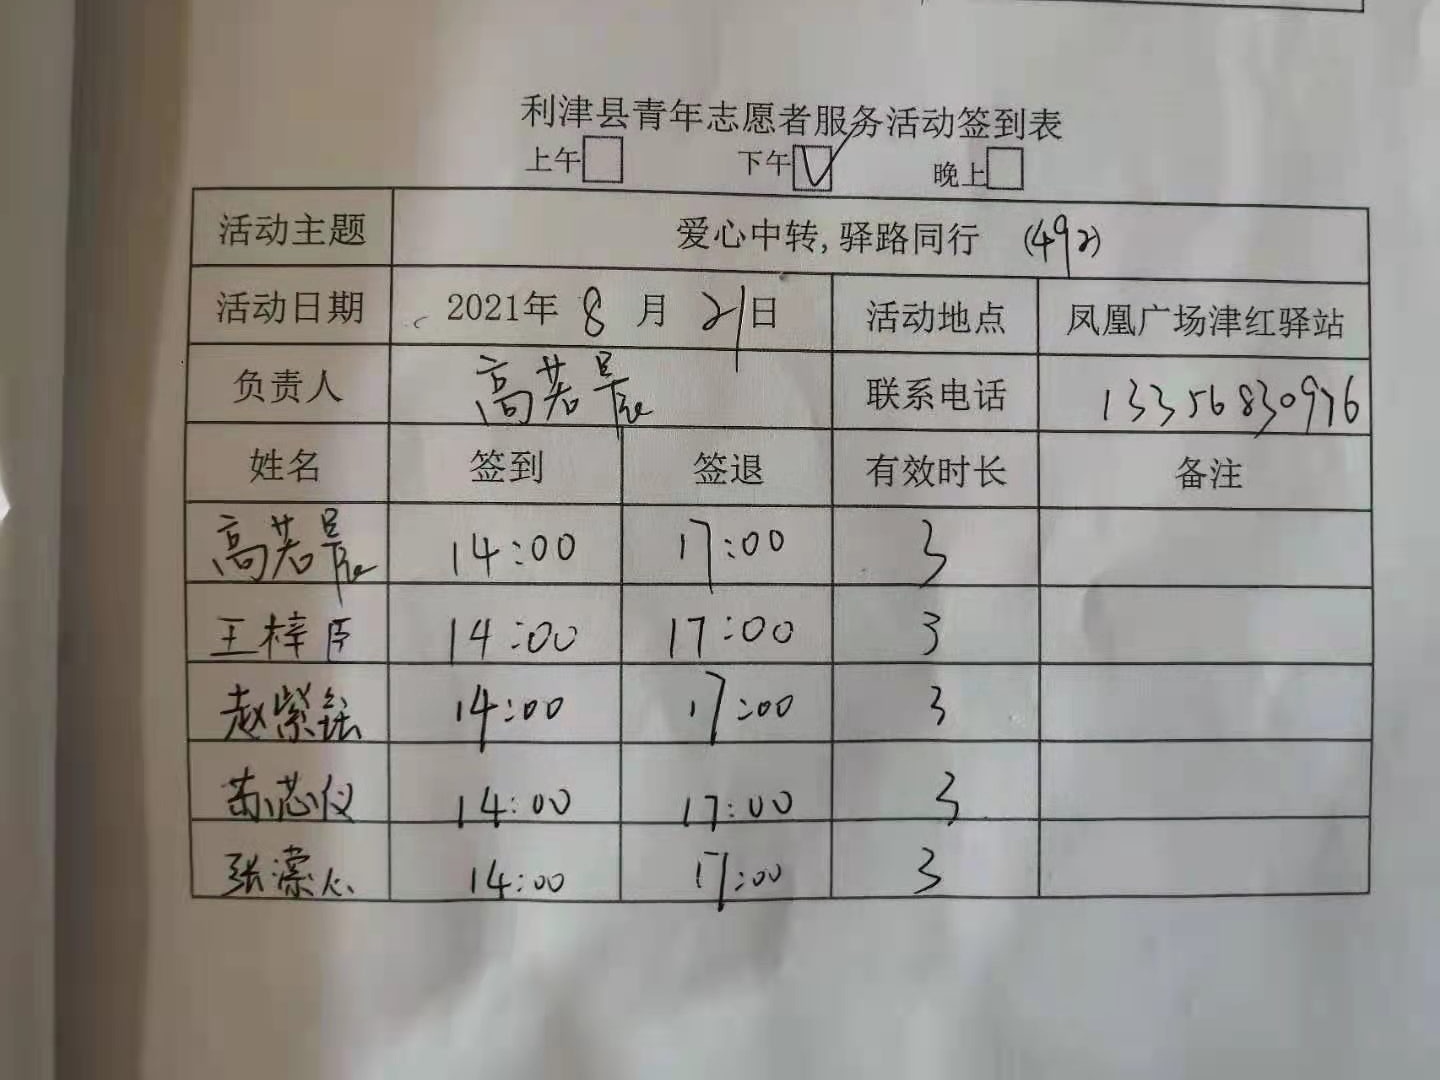 利津县青年志愿者服务活动签到表
上午 下午 晚上
活动主题 爱心中转,驿路同行 (492)
活动日期 2021年 8 月 21日 活动地点 凤凰广场津红驿站
负责人 高若晨 联系电话 13356830976
姓名 签到 签退 有效时长 备注
高若晨 14:00 17:00 3
王梓臣 14:00 17:00 3
赵紫 14:00 17:00 3
苏芯仪 14:00 17:00 3
张 14:00 17:00 3